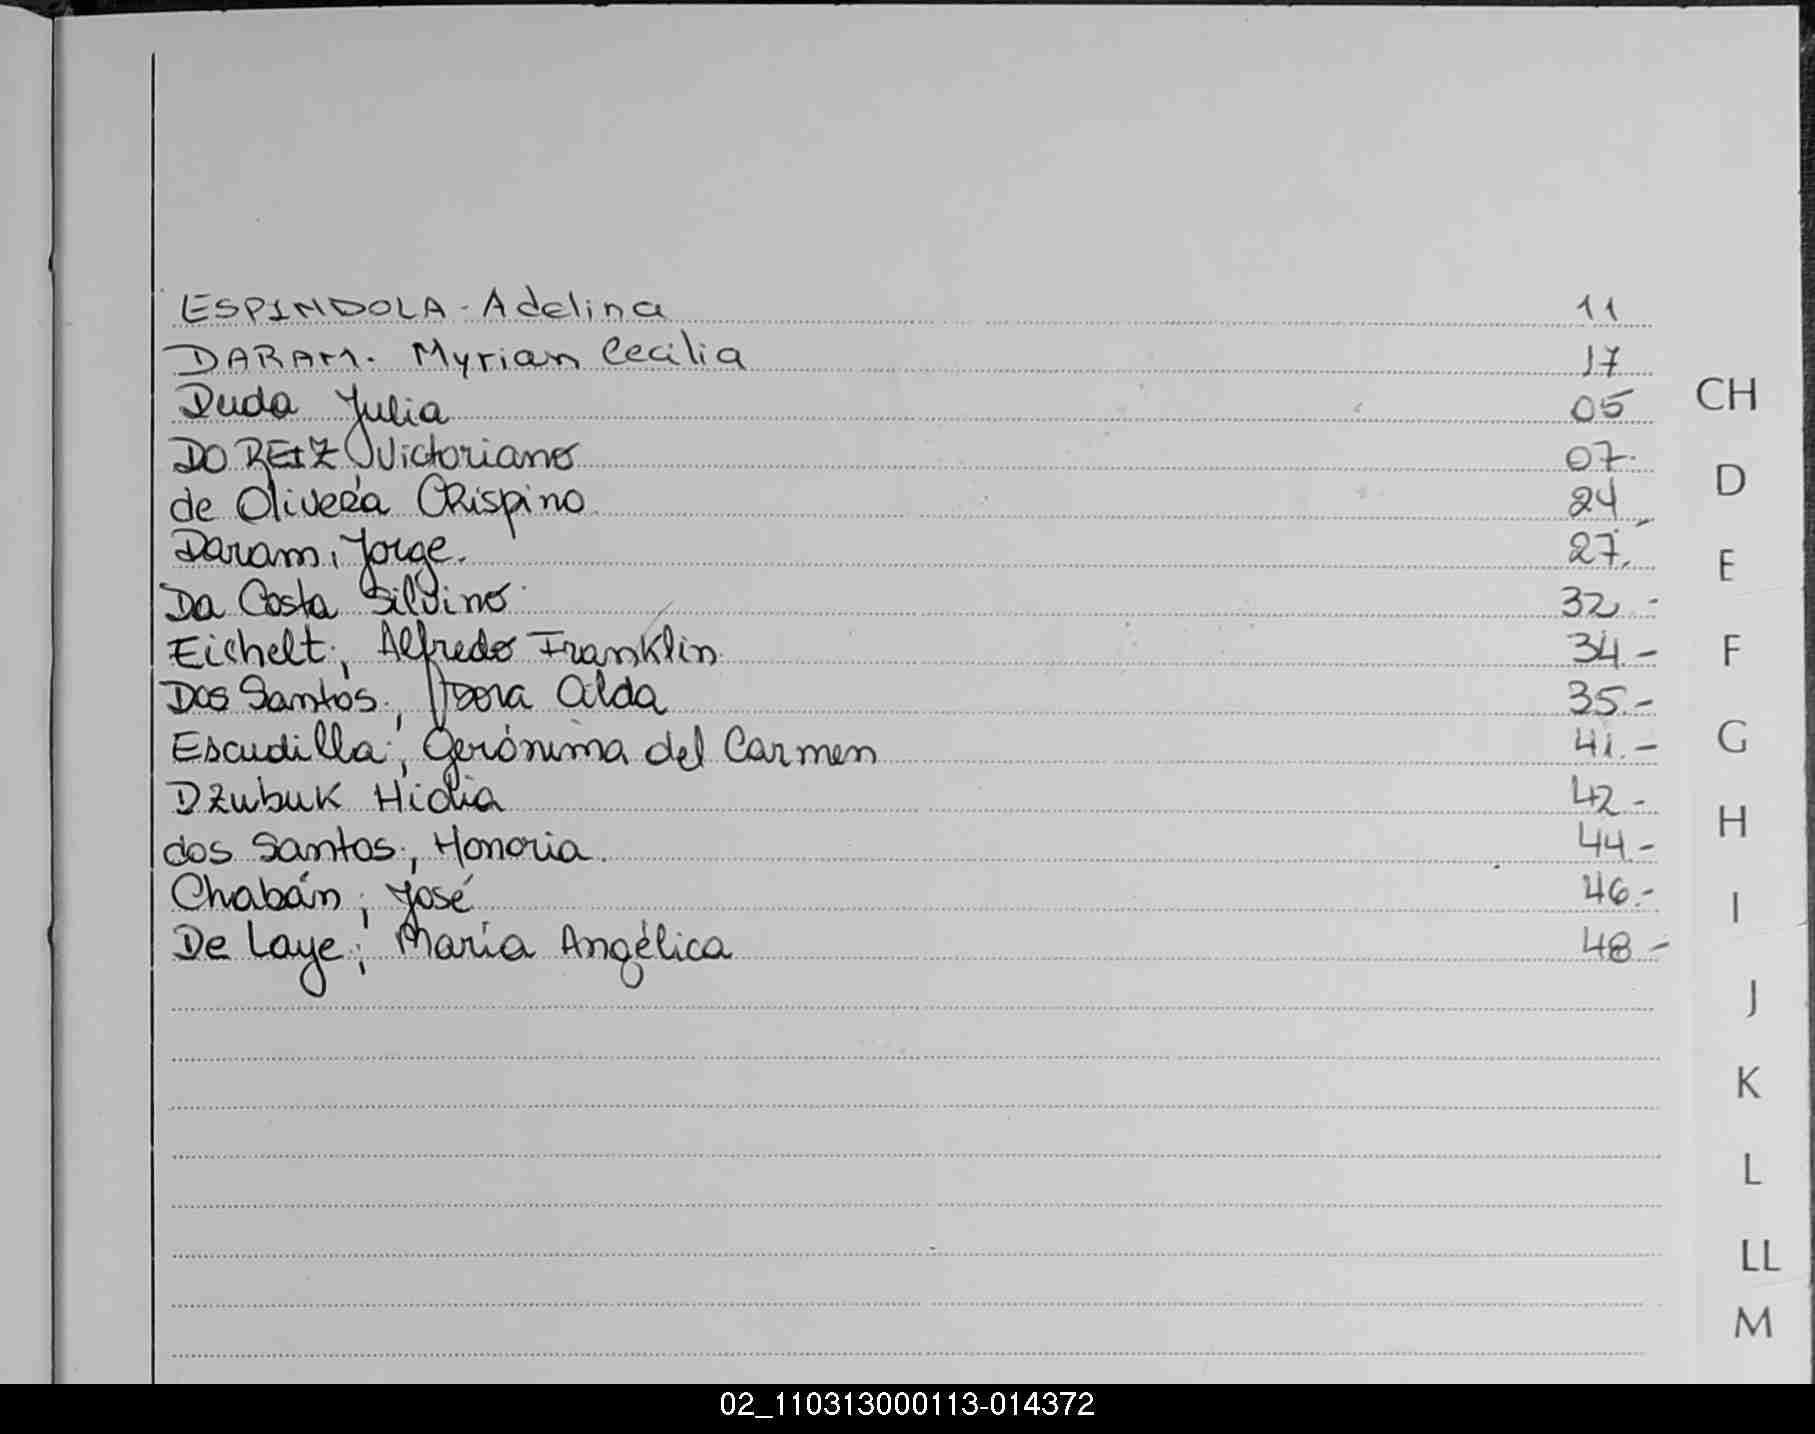 ESPINDOLA - Adelina 11
DARAM. Myrian Cecilia 17
Duda Julia 05
DO REIZ Victoriano 07.
de Olivera Crispino 24
Daram, Jorge. 27.
Da Costa Silvino 32.-
Eichelt, Alfredo Franklin 34.-
Dos Santos, Dora Alda 35.-
Escudilla, Gerónima del Carmen 41.-
Dzubuk Hidia 42.-
dos Santos, Honoria. 44.-
Chabán, José 46.-
De Laye, María Angélica 48.-
CH
D
E
F
G
H
I
J
K
L
LL
M
02_110313000113-014372